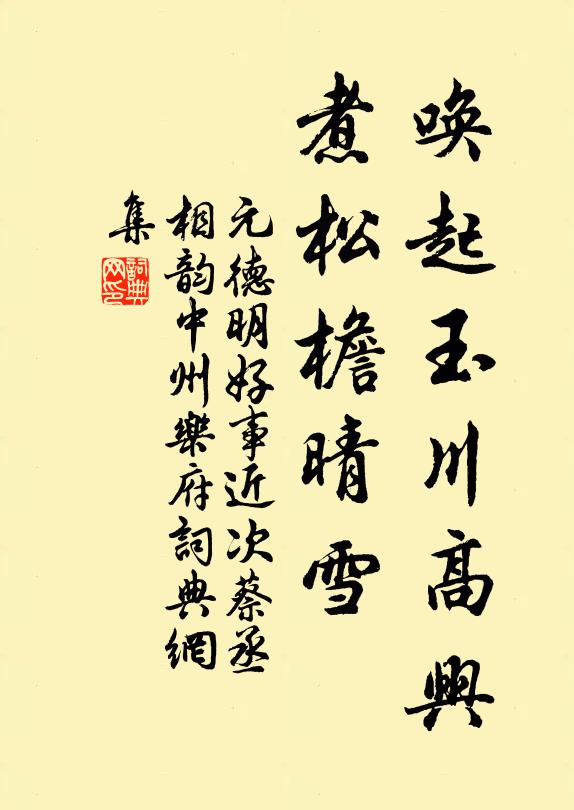 唤起玉川高興
煮松檐晴雪
元德明好事近次蔡丞
相韵中州樂府詞典網
集
詞典
网印